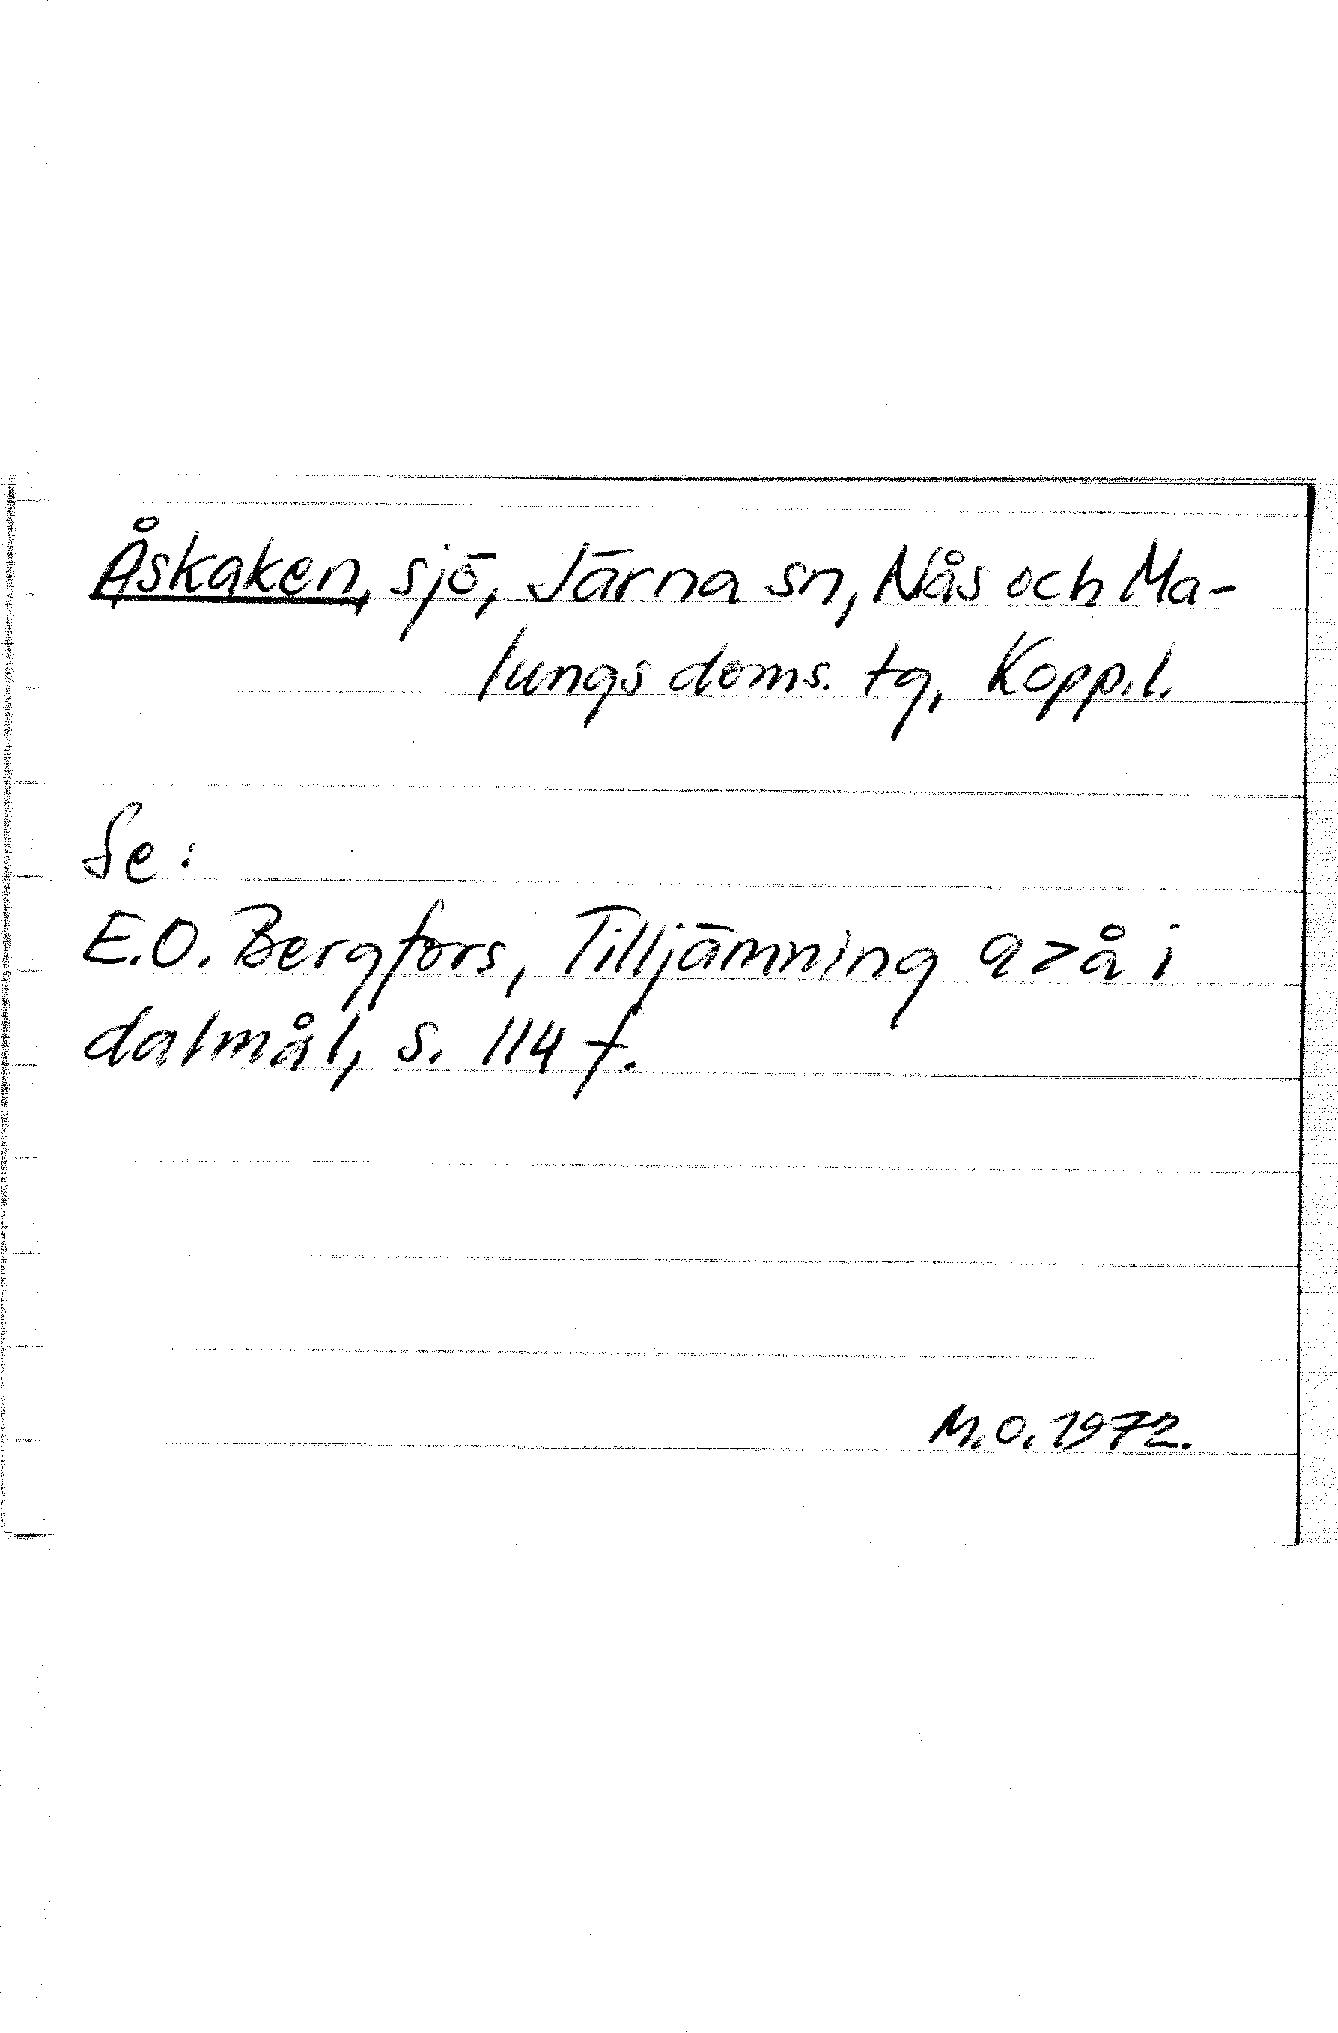 Åskaken, sjö, Järna sn, Nås och Ma-
lungs doms. tg, Kopp.l.
Se:
E.O. Bergfors, Tilljämning a > å i
dalmål, s. 114 f.
M.O. 1972.